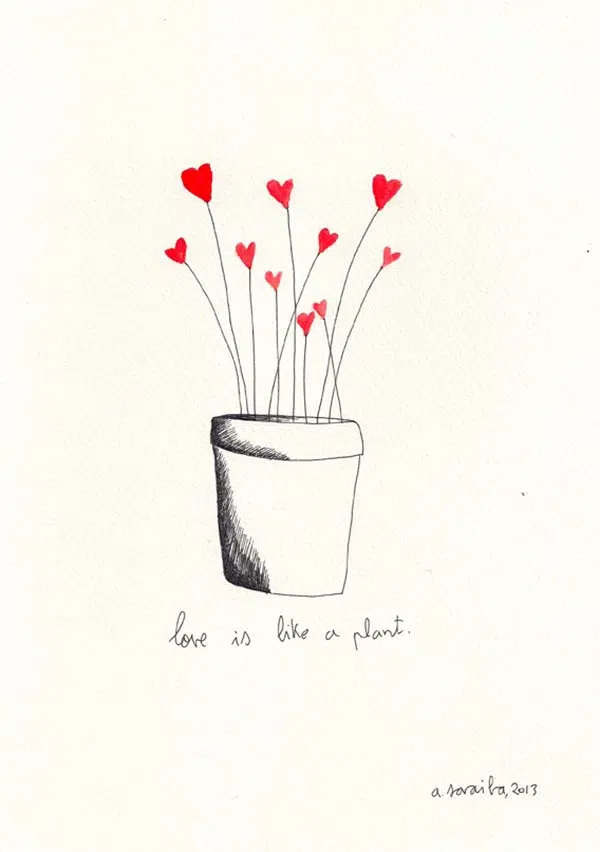 love is like a plant.
a. saraiba, 2013